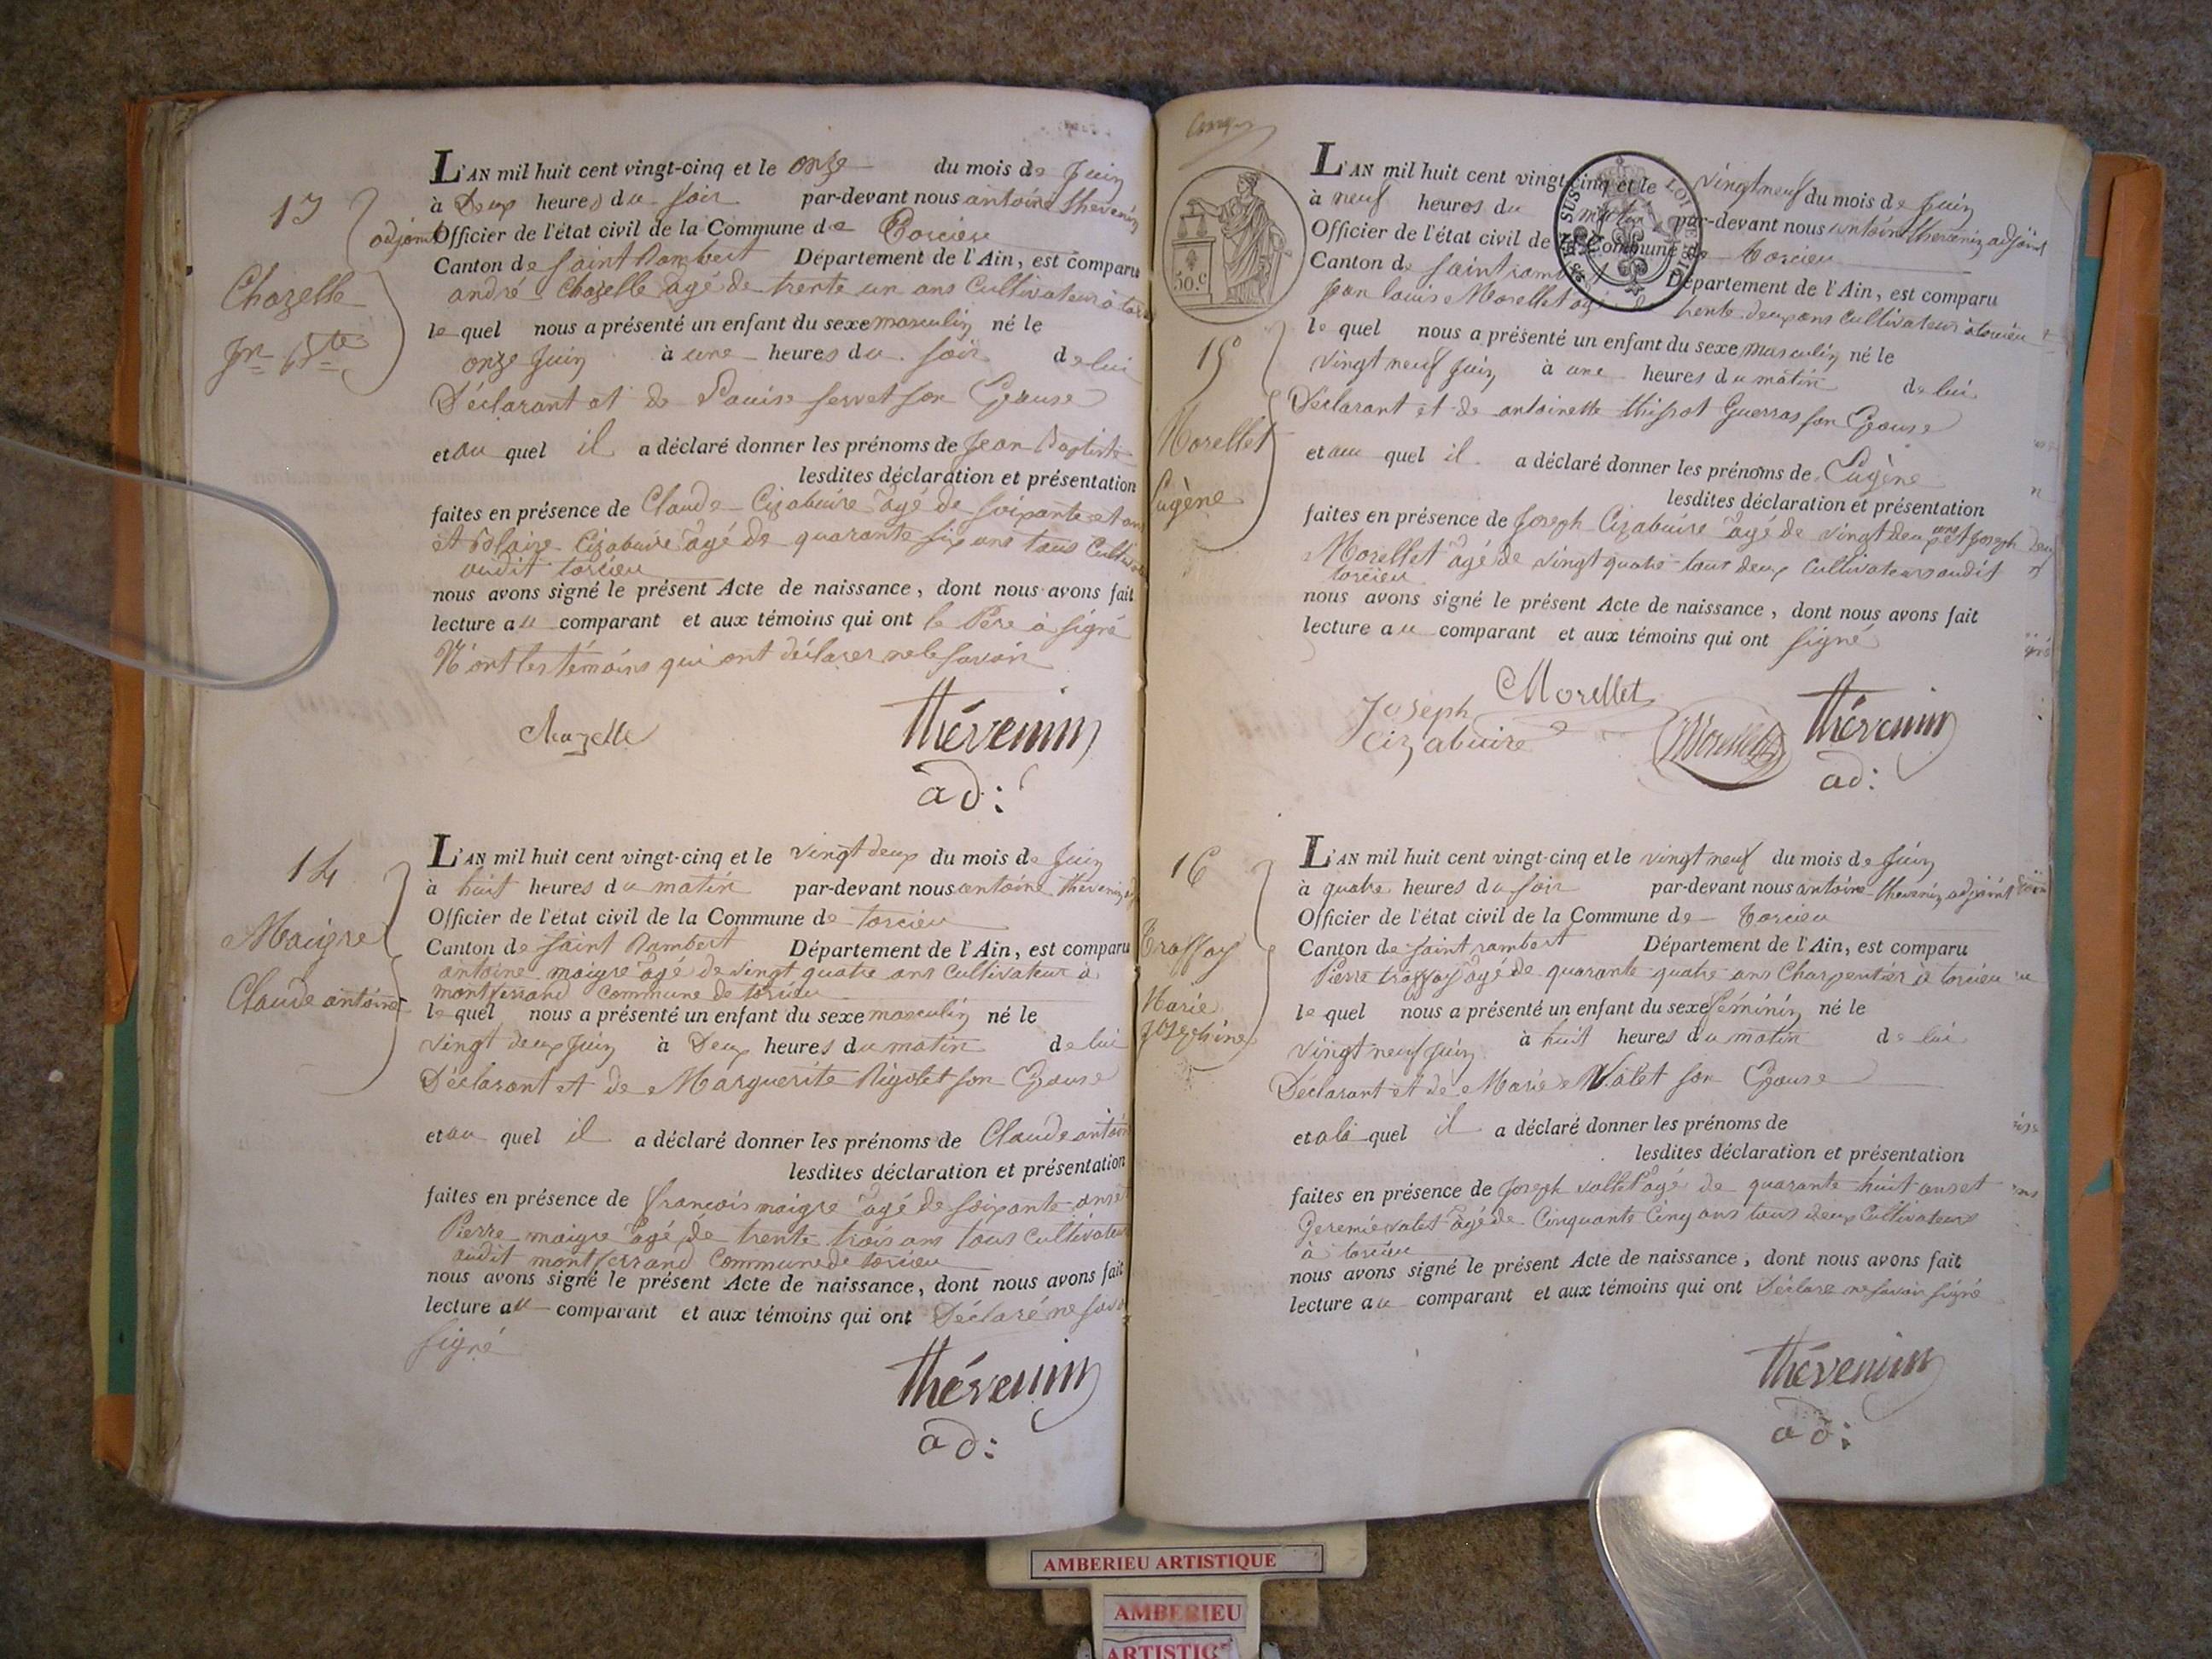 13
Chazelle
Jn Bte
L'AN mil huit cent vingt-cinq et le onze du mois de Juin
à Deux heures du soir par-devant nous antoine thevenin
adjoint Officier de l'état civil de la Commune de Torcieu
Canton de saint Rambert Département de l'Ain, est comparu
andré Chazelle agé de trente un ans Cultivateur à
le quel nous a présenté un enfant du sexe masculin né le
onze Juin à une heures du soir de lui
Déclarant et de Louise servet son Epouse
et au quel il a déclaré donner les prénoms de Jean Baptiste
lesdites déclaration et présentation
faites en présence de Claude Cizabuire agé de soixante et
et Claire Cizabuire agé de quarante six ans tous
audit torcieu
nous avons signé le présent Acte de naissance, dont nous avons fait
lecture au comparant et aux témoins qui ont le Père à signé
N'ont les témoins qui ont déclarer ne le savoir
Chazelle
thévenin
ad:
14
Maigre
Claude antoine
L'AN mil huit cent vingt-cinq et le vingt deux du mois de Juin
à huit heures du matin par-devant nous antoine thevenin
Officier de l'état civil de la Commune de torcieu
Canton de saint Rambert Département de l'Ain, est comparu
antoine maigre agé de vingt quatre ans Cultivateur à
montferrand Commune de torcieu
le quel nous a présenté un enfant du sexe masculin né le
vingt deux Juin à Deux heures du matin de lui
Déclarant et de Marguerite Rigolet son Epouse
et au quel il a déclaré donner les prénoms de Claude antoine
lesdites déclaration et présentation
faites en présence de francois maigre agé de soixante
Pierre maigre agé de trente trois ans tous Cultivateur
audit montferrand Commune de torcieu
nous avons signé le présent Acte de naissance, dont nous avons fait
lecture au comparant et aux témoins qui ont Déclaré ne savoir
signé
thévenin
ad:
50 c
15
Morellet
Eugène
L'AN mil huit cent vingt-cinq et le vingt neuf du mois de Juin
à neuf heures du matin par-devant nous antoine thevenin adjoint
Officier de l'état civil de la Commune de torcieu
Canton de saint rambert Département de l'Ain, est comparu
jean louis Morellet agé de trente deux ans Cultivateur à torcieu
le quel nous a présenté un enfant du sexe masculin né le
vingt neuf Juin à une heures du matin de lui
Déclarant et de antoinette Guerras son Epouse
et au quel il a déclaré donner les prénoms de Eugène
lesdites déclaration et présentation
faites en présence de Joseph Cizabuire agé de vingt deux ans et Joseph
Morellet agé de vingt quatre tous deux Cultivateurs audit
torcieu
nous avons signé le présent Acte de naissance, dont nous avons fait
lecture au comparant et aux témoins qui ont signé
Joseph Cizabuire
Morellet
Morellet
thévenin
ad:
16
Traffay
Marie
Josephine
L'AN mil huit cent vingt-cinq et le vingt neuf du mois de Juin
à quatre heures du soir par-devant nous antoine thevenin adjoint
Officier de l'état civil de la Commune de torcieu
Canton de saint rambert Département de l'Ain, est comparu
Pierre traffay agé de quarante quatre ans Charpentier à torcieu
le quel nous a présenté un enfant du sexe féminin né le
vingt neuf juin à huit heures du matin de lui
Déclarant et de Marie Valet son Epouse
et à la quel il a déclaré donner les prénoms de
lesdites déclaration et présentation
faites en présence de Joseph vallet agé de quarante huit ans et
Geremie valet agé de Cinquante Cinq ans tous deux Cultivateurs
à torcieu
nous avons signé le présent Acte de naissance, dont nous avons fait
lecture au comparant et aux témoins qui ont Déclare ne savoir signé
thévenin
ad:
AMBERIEU ARTISTIQUE
AMBERIEU